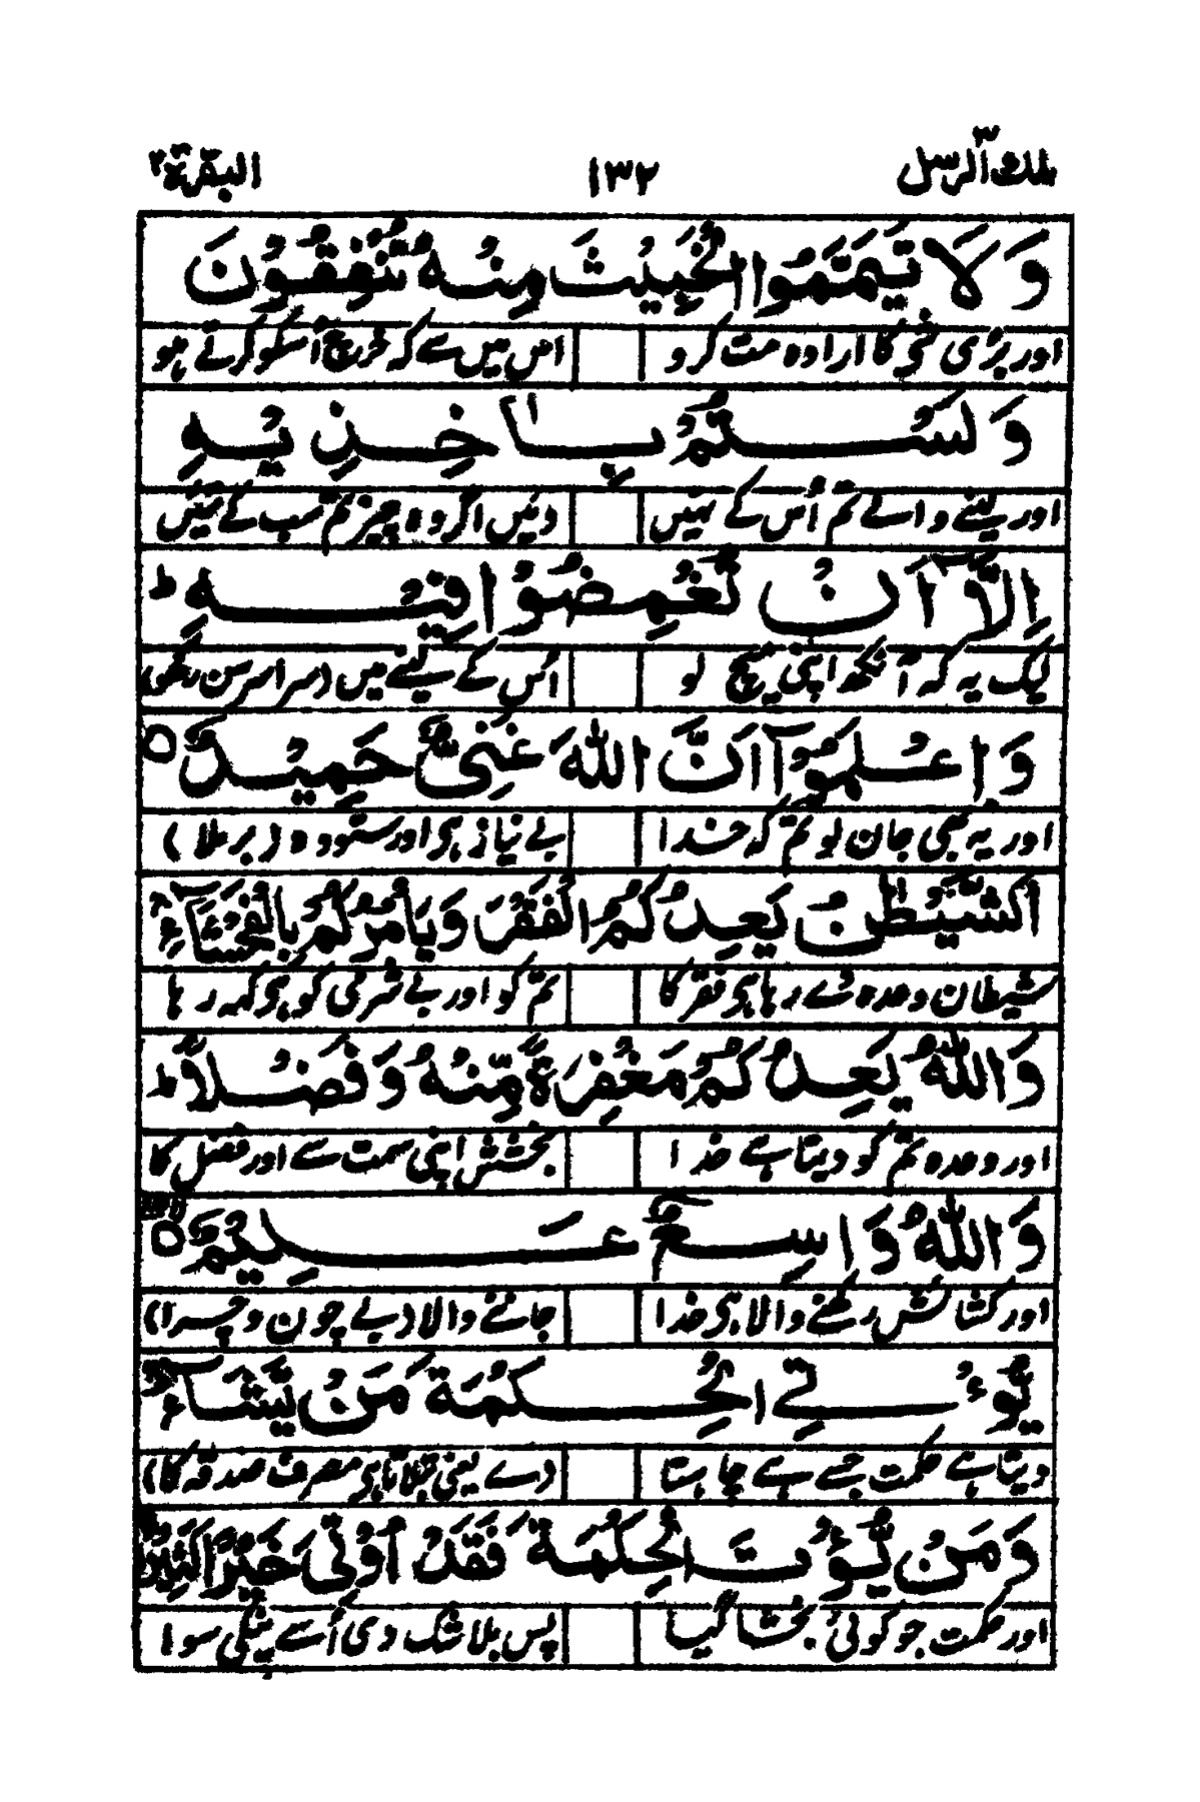 تلك الرسل ۳ ۱۳۲ البقرة ۲
وَلَا تَيَمَّمُوا الْخَبِيْثَ مِنْهُ تُنْفِقُوْنَ
اور بری شی کا ارادہ مت کرو اس میں سے کہ خرچ اسکو کرتے ہو
وَلَسْتُمْ بِاٰخِذِيْهِ
اور لینے والے تم اُس کے نہیں دئیں اگر وہ چیز تم سب کے تئیں
اِلَّآ اَنْ تُغْمِضُوْا فِيْهِ ؕ
لیک یہ کہ آنکھ اپنی میچ لو اُس کے لینے میں (سراسر سن رکھو
وَاعْلَمُوْٓا اَنَّ اللّٰهَ غَنِيٌّ حَمِيْدٌ ○
اور یہ بھی جان لو تم کہ خدا بے نیاز ہی اور ستودہ (بر ملا)
اَلشَّيْطٰنُ يَعِدُكُمُ الْفَقْرَ وَيَاْمُرُكُمْ بِالْفَحْشَآءِ ۚ
شیطان وعدہ دے رہا ہی فقر کا تم کو اور بے شرمی کو ہی کہہ رہا
وَاللّٰهُ يَعِدُكُمْ مَّغْفِرَةً مِّنْهُ وَفَضْلًا ؕ
اور وعدہ تم کو دیتا ہے خدا بخشش اپنی سمت سے اور فضل کا
وَاللّٰهُ وَاسِعٌ عَلِيْمٌ ○
اور کشائش رکھنے والا ہی خدا جاننے والا (بے چون وچرا)
يُّؤْتِي الْحِكْمَةَ مَنْ يَّشَآءُ ۚ
دیتا ہے حکمت جسے ہے چاہتا (دے یعنی بتلاتا ہی مصرف صدقہ کا)
وَمَنْ يُّؤْتَ الْحِكْمَةَ فَقَدْ اُوْتِيَ خَيْرًا كَثِيْرًا
اور حکمت جو کوئی بخشا گیا پس بلا شک دی اُسے نیکی سوا